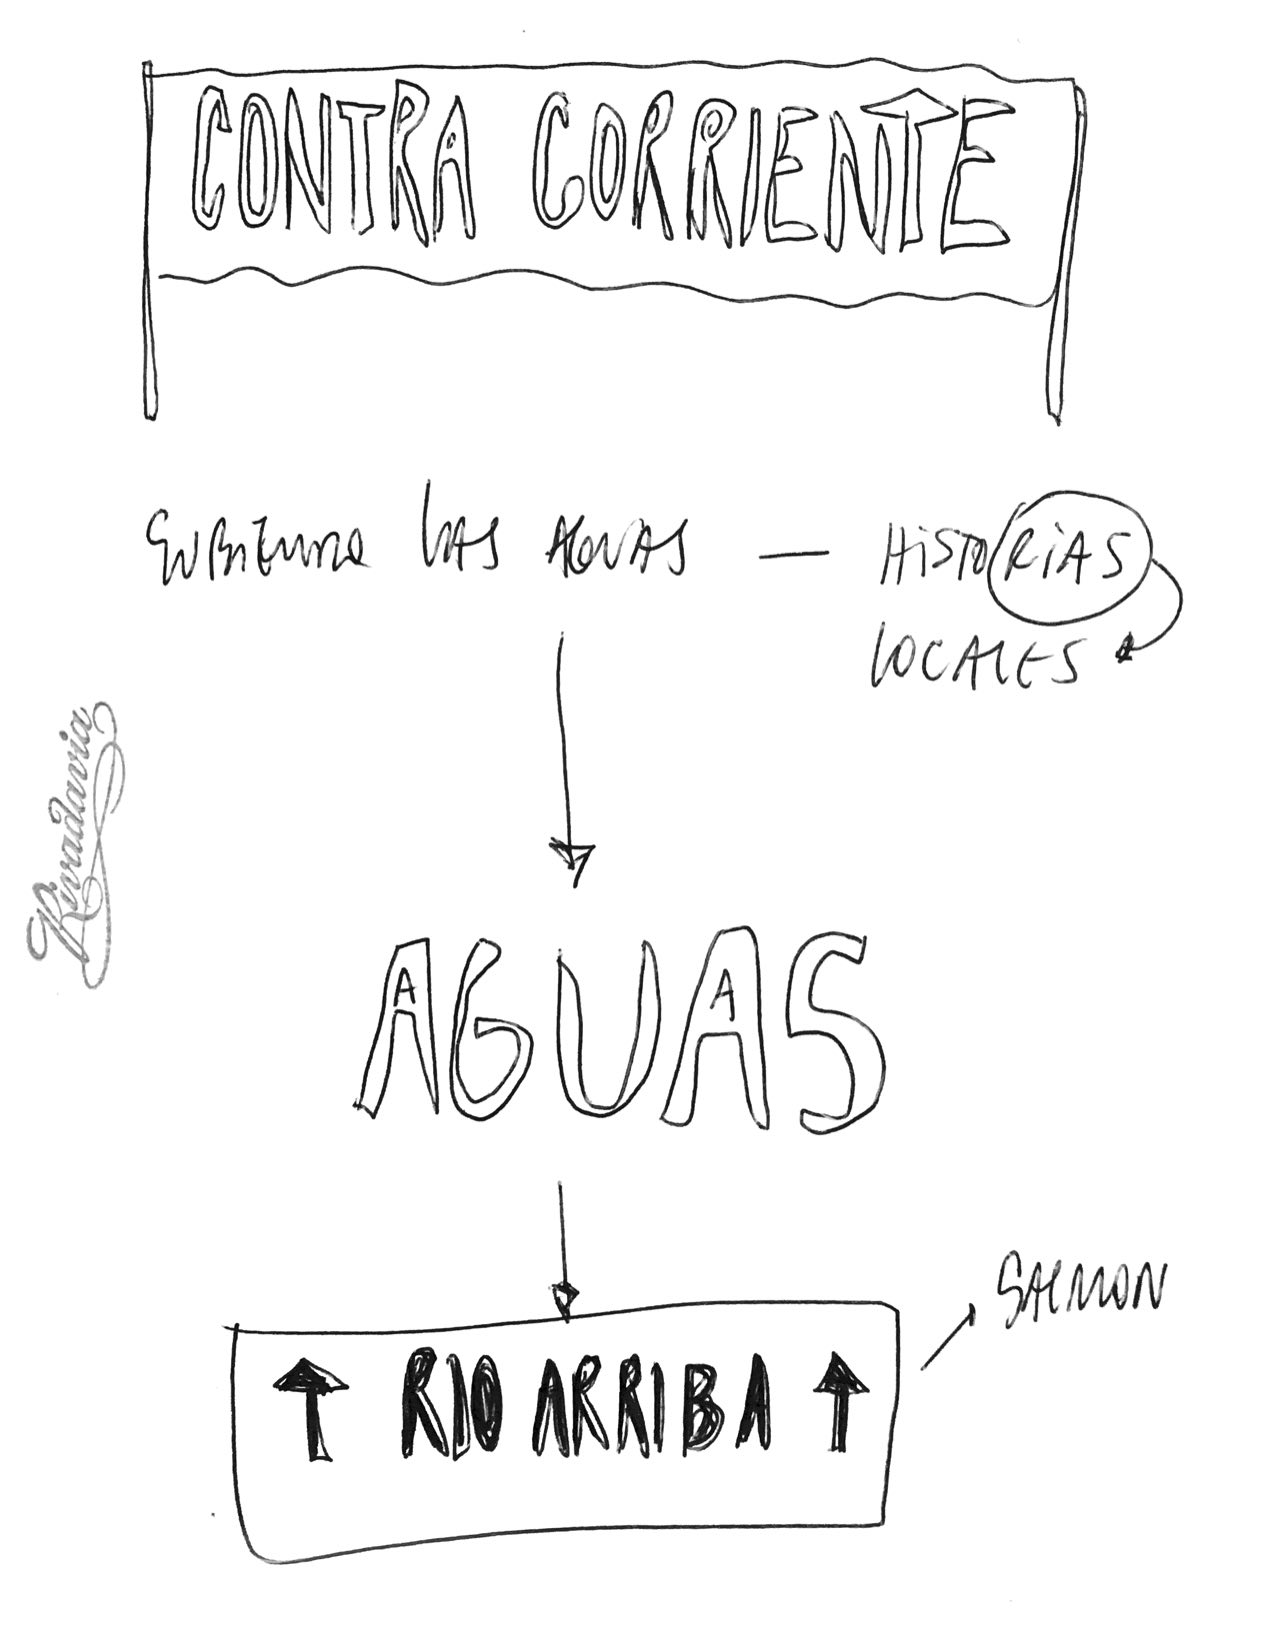 CONTRA CORRIENTE
SUBIENDO LAS AGUAS — HISTORIAS
LOCALES
Rivadavia
AGUAS
A A
↑ RIO ARRIBA ↑
SALMON